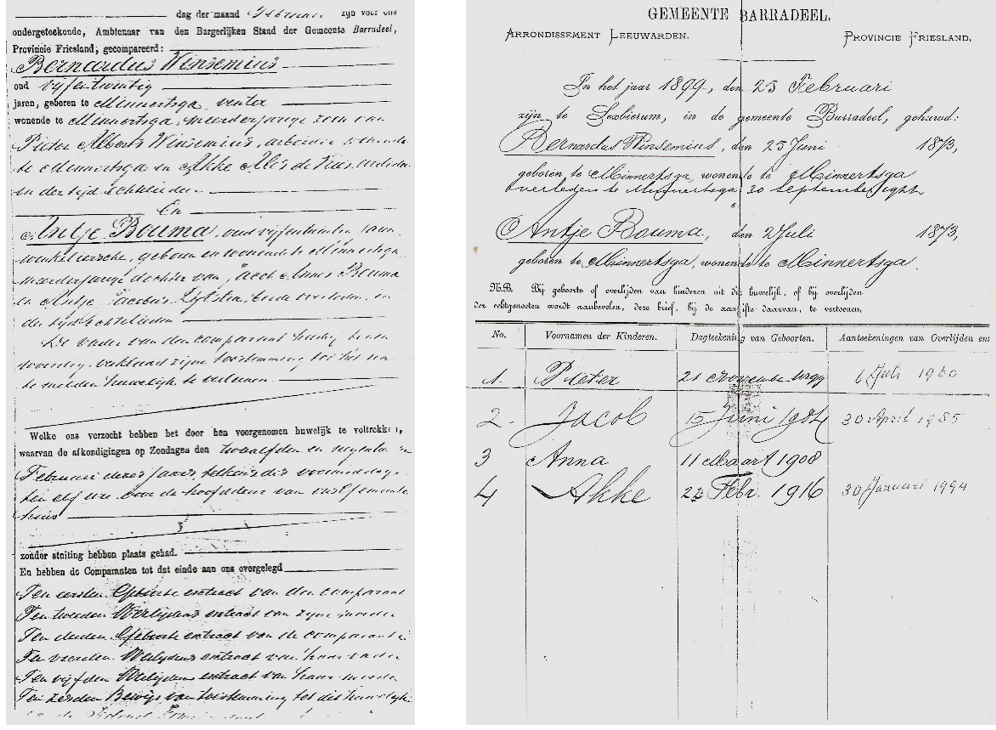 dag der maand Februari zijn voor ons
ondergeteekende, Ambtenaar van den Burgerlijken Stand der Gemeente Barradeel,
Provincie Friesland, gecompareerd:
Bernardus Winsemius
oud vijfentwintig
jaren, geboren te Minnertsga, venter
wonende te Minnertsga, meerderjarige zoon van
Pieter Alberts Winsemius, arbeider, wonende
te Minnertsga en Akke Ales de Vries, overleden
in der tijd Echtelieden
En
Antje Bouma, oud vijfentwintig jaren,
winkeliersche, geboren en wonende te Minnertsga
meerderjarige dochter van Jacob Bouma
en Antje Jacobus Zijlstra, beide overleden, in
der tijd Echtelieden
De vader van den comparant hierbij
verklaard zijne toestemming tot het
te melden huwelijk te verleenen
Welke ons verzocht hebben het door hen voorgenomen huwelijk te voltrekken,
waarvan de afkondigingen op Zondagen den twaalfden en
Februari dezes jaars, telkens des voormiddags
ten elf ure, voor de hoofddeur van ons Gemeente
huis
zonder stuiting hebben plaats gehad.
En hebben de Comparanten tot dat einde aan ons overgelegd
Ten eersten Geboorte extract van den comparant
Ten tweeden Overlijdens extract van zijne moeder
Ten derden Geboorte extract van de comparante
Ten vierden Overlijdens extract van haar vader
Ten vijfden Overlijdens extract van hare moeder
Ten zesden Bewijs van toestemming tot dit huwelijk
GEMEENTE BARRADEEL.
ARRONDISSEMENT LEEUWARDEN. PROVINCIE FRIESLAND.
In het jaar 1899, den 25 Februari
zijn te Sexbierum, in de gemeente Barradeel, gehuwd:
Bernardus Winsemius, den 25 Juni 1873,
geboren te Minnertsga, wonende te Minnertsga
overleden te Minnertsga 30 September
Antje Bouma, den 2 Juli 1873,
geboren te Minnertsga, wonende te Minnertsga.
N.B. Bij geboorte of overlijden van kinderen uit dit huwelijk, of bij overlijden
der echtgenooten wordt aanbevolen, deze brief, bij de aangifte daarvan, te vertoonen.
No. Voornamen der Kinderen. Dagteekening van Geboorten. Aanteekeningen van Overlijden en
1. Pieter 21 November 1899 6 Juli 1960
2. Jacob 15 Juni 1904 30 April 1985
3 Anna 11 Maart 1908
4 Akke 22 Febr. 1916 30 Januari 1994